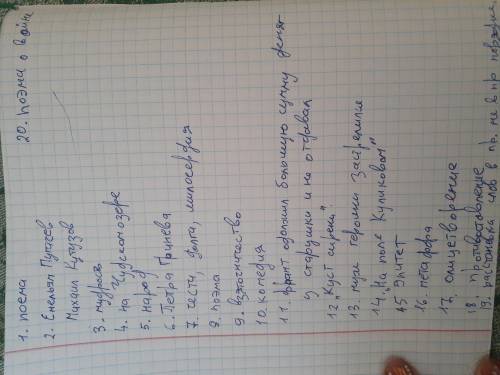 1. поема
2. Емельян Пугачев
Михаил Кутузов
3. мудрость
4. на Чудском озере
5. народ
6. Петра Гринева
7. чести, долга, милосердия
8. поэма
9. взяточничество
10. комедия
11. фронт одолжил большую сумму денег
у старушки и не отдавал
12. "Куст сирени"
13. муж героини застрелился
14. "На поле Куликовом"
15 Эпитет
16. метафора
17. олицетворение
18. противопоставление
19. расстановка слов в пр. не в пр порядке
20. поэма о войне